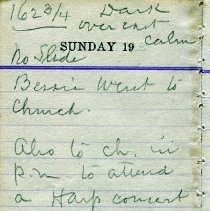 162 3/4 Dark
over cast
calm
SUNDAY 19
No Slide
Bessie Went to
Church.
Also to ch. in
p.m to attend
a Harp concert